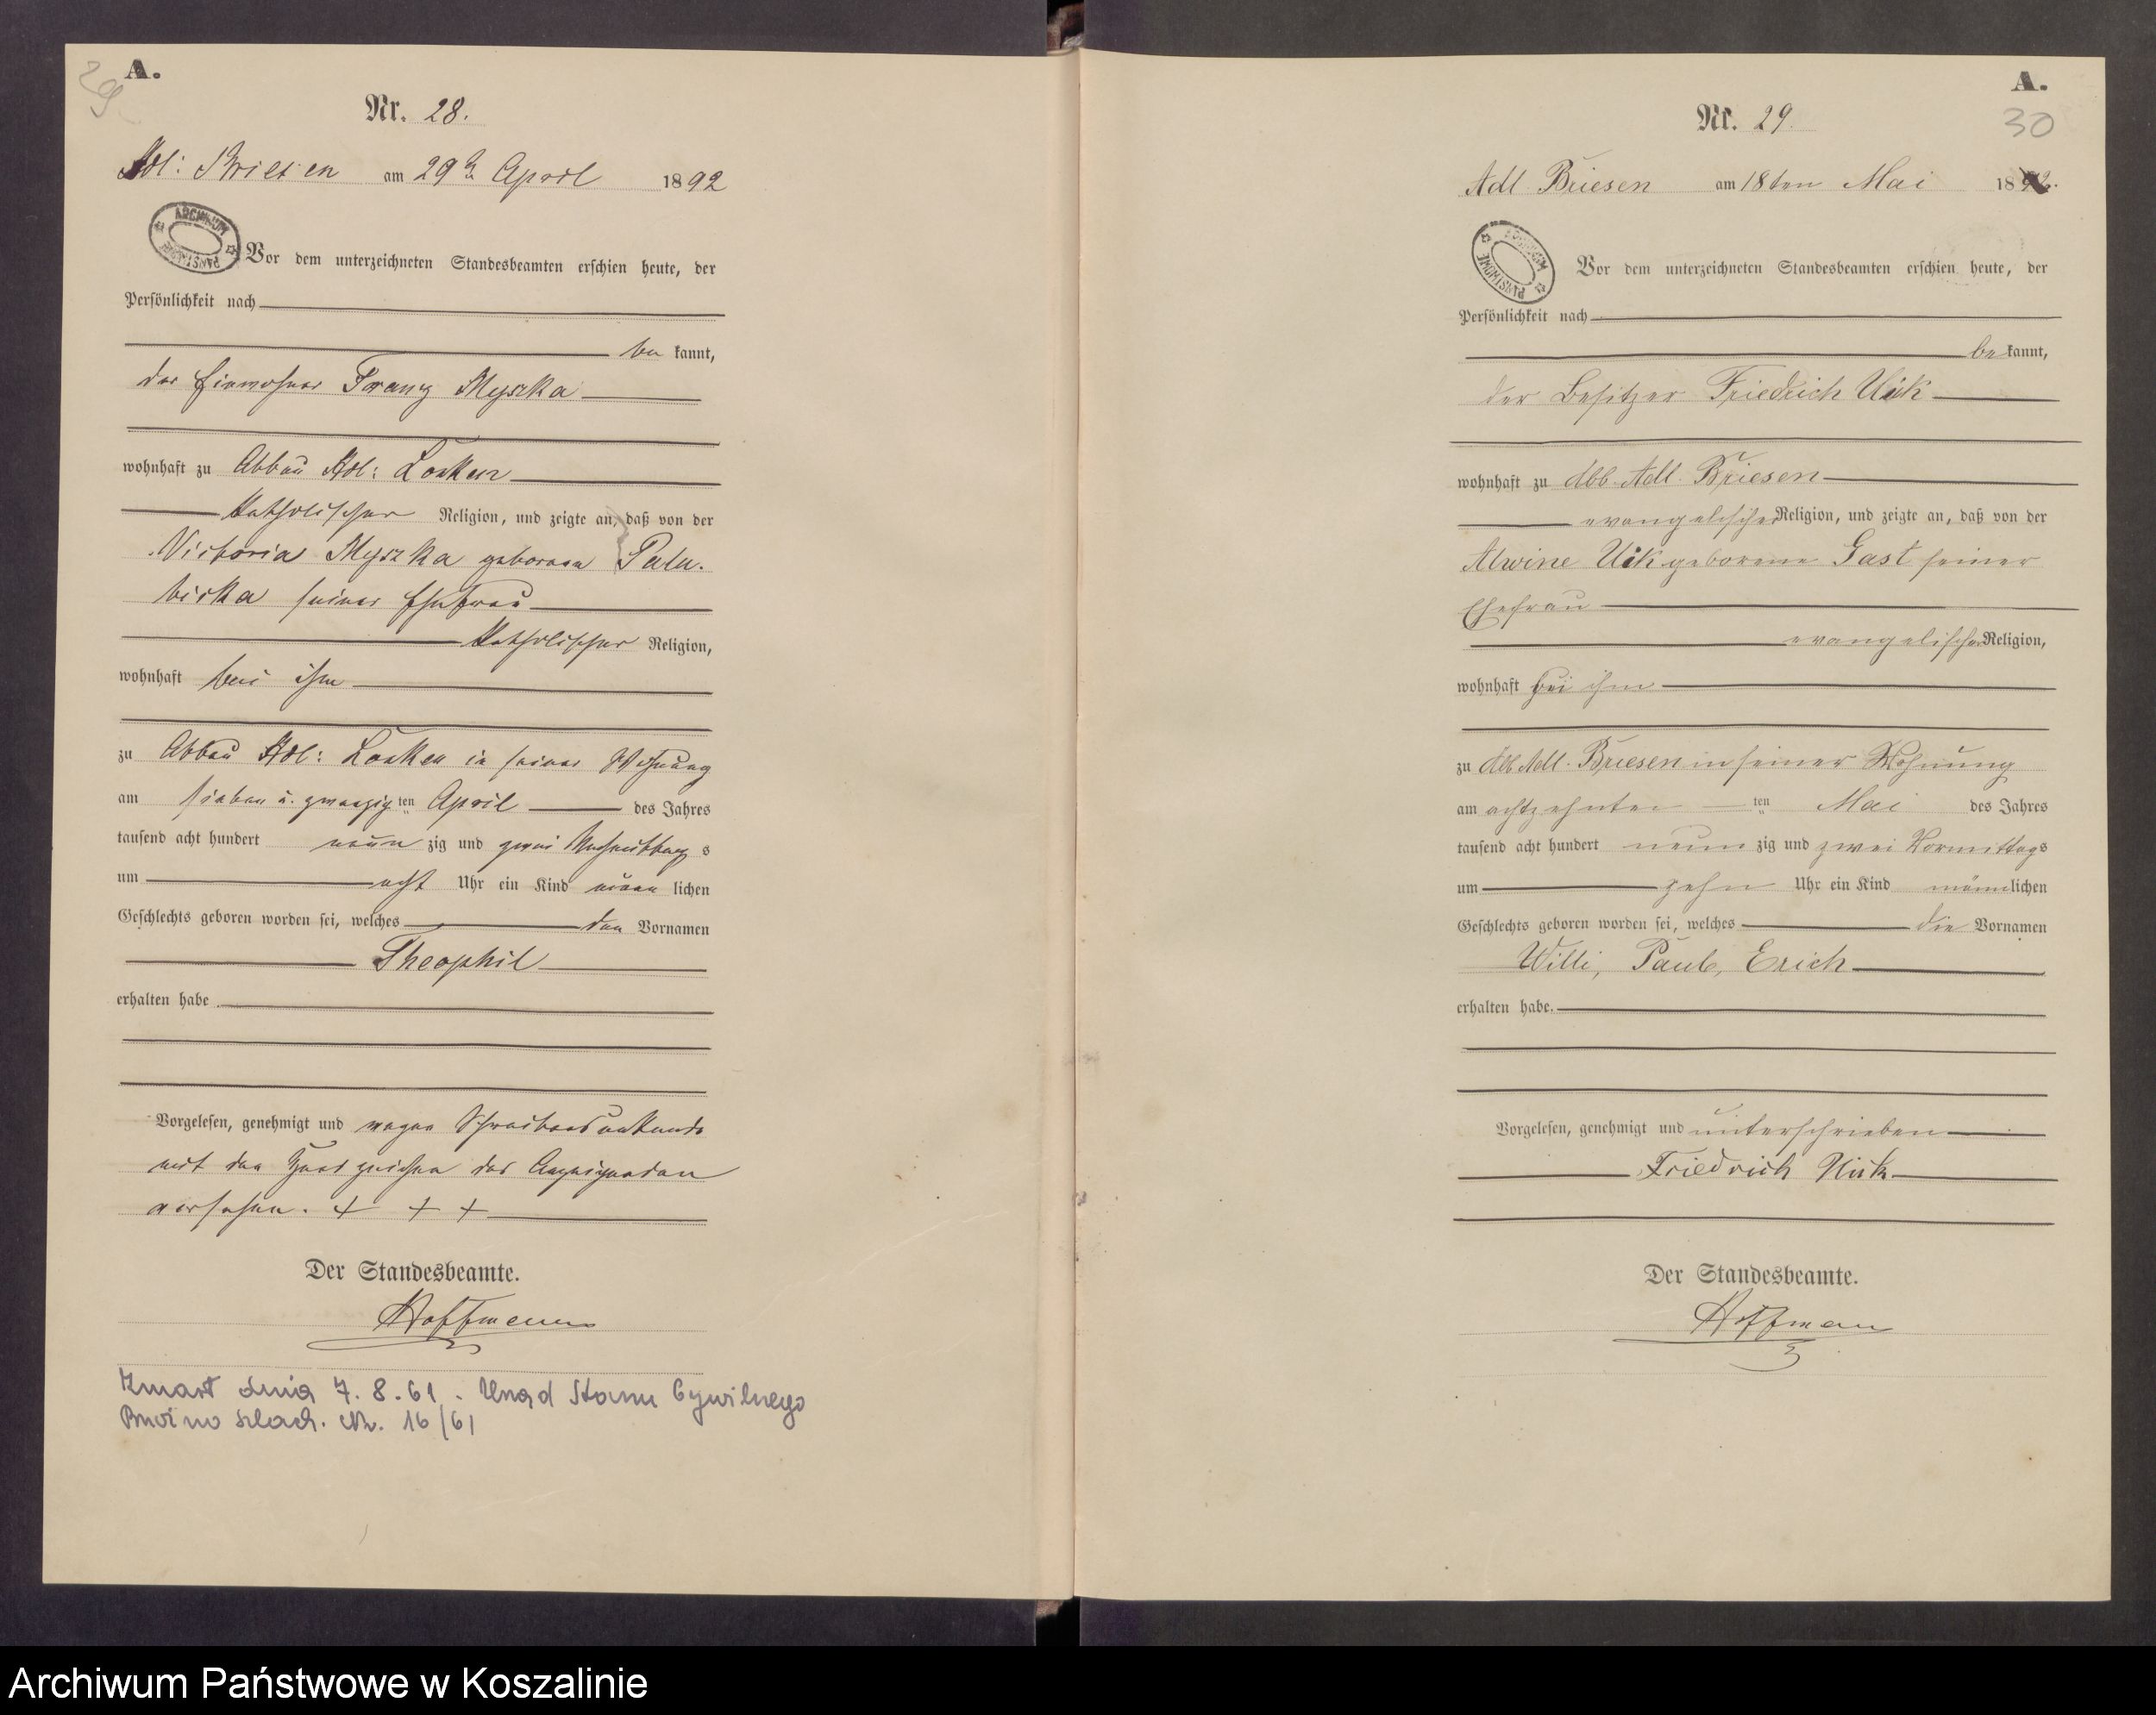 29
A.
Nr. 28.
Adl: Briesen am 29ten April 1892
ARCHIWUM PAŃSTWOWE
Vor dem unterzeichneten Standesbeamten erschien heute, der
Persönlichkeit nach
be kannt,
der Einwohner Franz Myszka
wohnhaft zu Abbau Adl: Lonken
katholischer Religion, und zeigte an, daß von der
Victoria Myszka geborene Palu-
bicka seiner Ehefrau
katholischer Religion,
wohnhaft bei ihm
zu Abbau Adl: Lonken in seiner Wohnung
am sieben u. zwanzig ten April des Jahres
tausend acht hundert neun zig und zwei Nachmittag s
um acht Uhr ein Kind männ lichen
Geschlechts geboren worden sei, welches den Vornamen
Theophil
erhalten habe
Vorgelesen, genehmigt und wegen Schreibensunkunde
mit den Handzeichen des Anzeigenden
versehen. + + +
Der Standesbeamte.
Hoffmann
Zmarł dnia 7. 8. 61. Urząd Stanu Cywilnego
Brzeźno Szlach. Nr. 16/61
A.
30
Nr. 29.
Adl Briesen am 18ten Mai 1892.
ARCHIWUM PAŃSTWOWE
Vor dem unterzeichneten Standesbeamten erschien heute, der
Persönlichkeit nach
be kannt,
der Besitzer Friedrich Uik
wohnhaft zu Abb. Adl. Briesen
evangelischer Religion, und zeigte an, daß von der
Alwine Uik geborene Gast seiner
Ehefrau
evangelischer Religion,
wohnhaft bei ihm
zu Abb Adl. Briesen in seiner Wohnung
am achtzehnten ten Mai des Jahres
tausend acht hundert neun zig und zwei Vormittags
um zehn Uhr ein Kind männlichen
Geschlechts geboren worden sei, welches die Vornamen
Willi, Paul, Erich
erhalten habe.
Vorgelesen, genehmigt und unterschrieben
Friedrich Uik
Der Standesbeamte.
Hoffmann
Archiwum Państwowe w Koszalinie